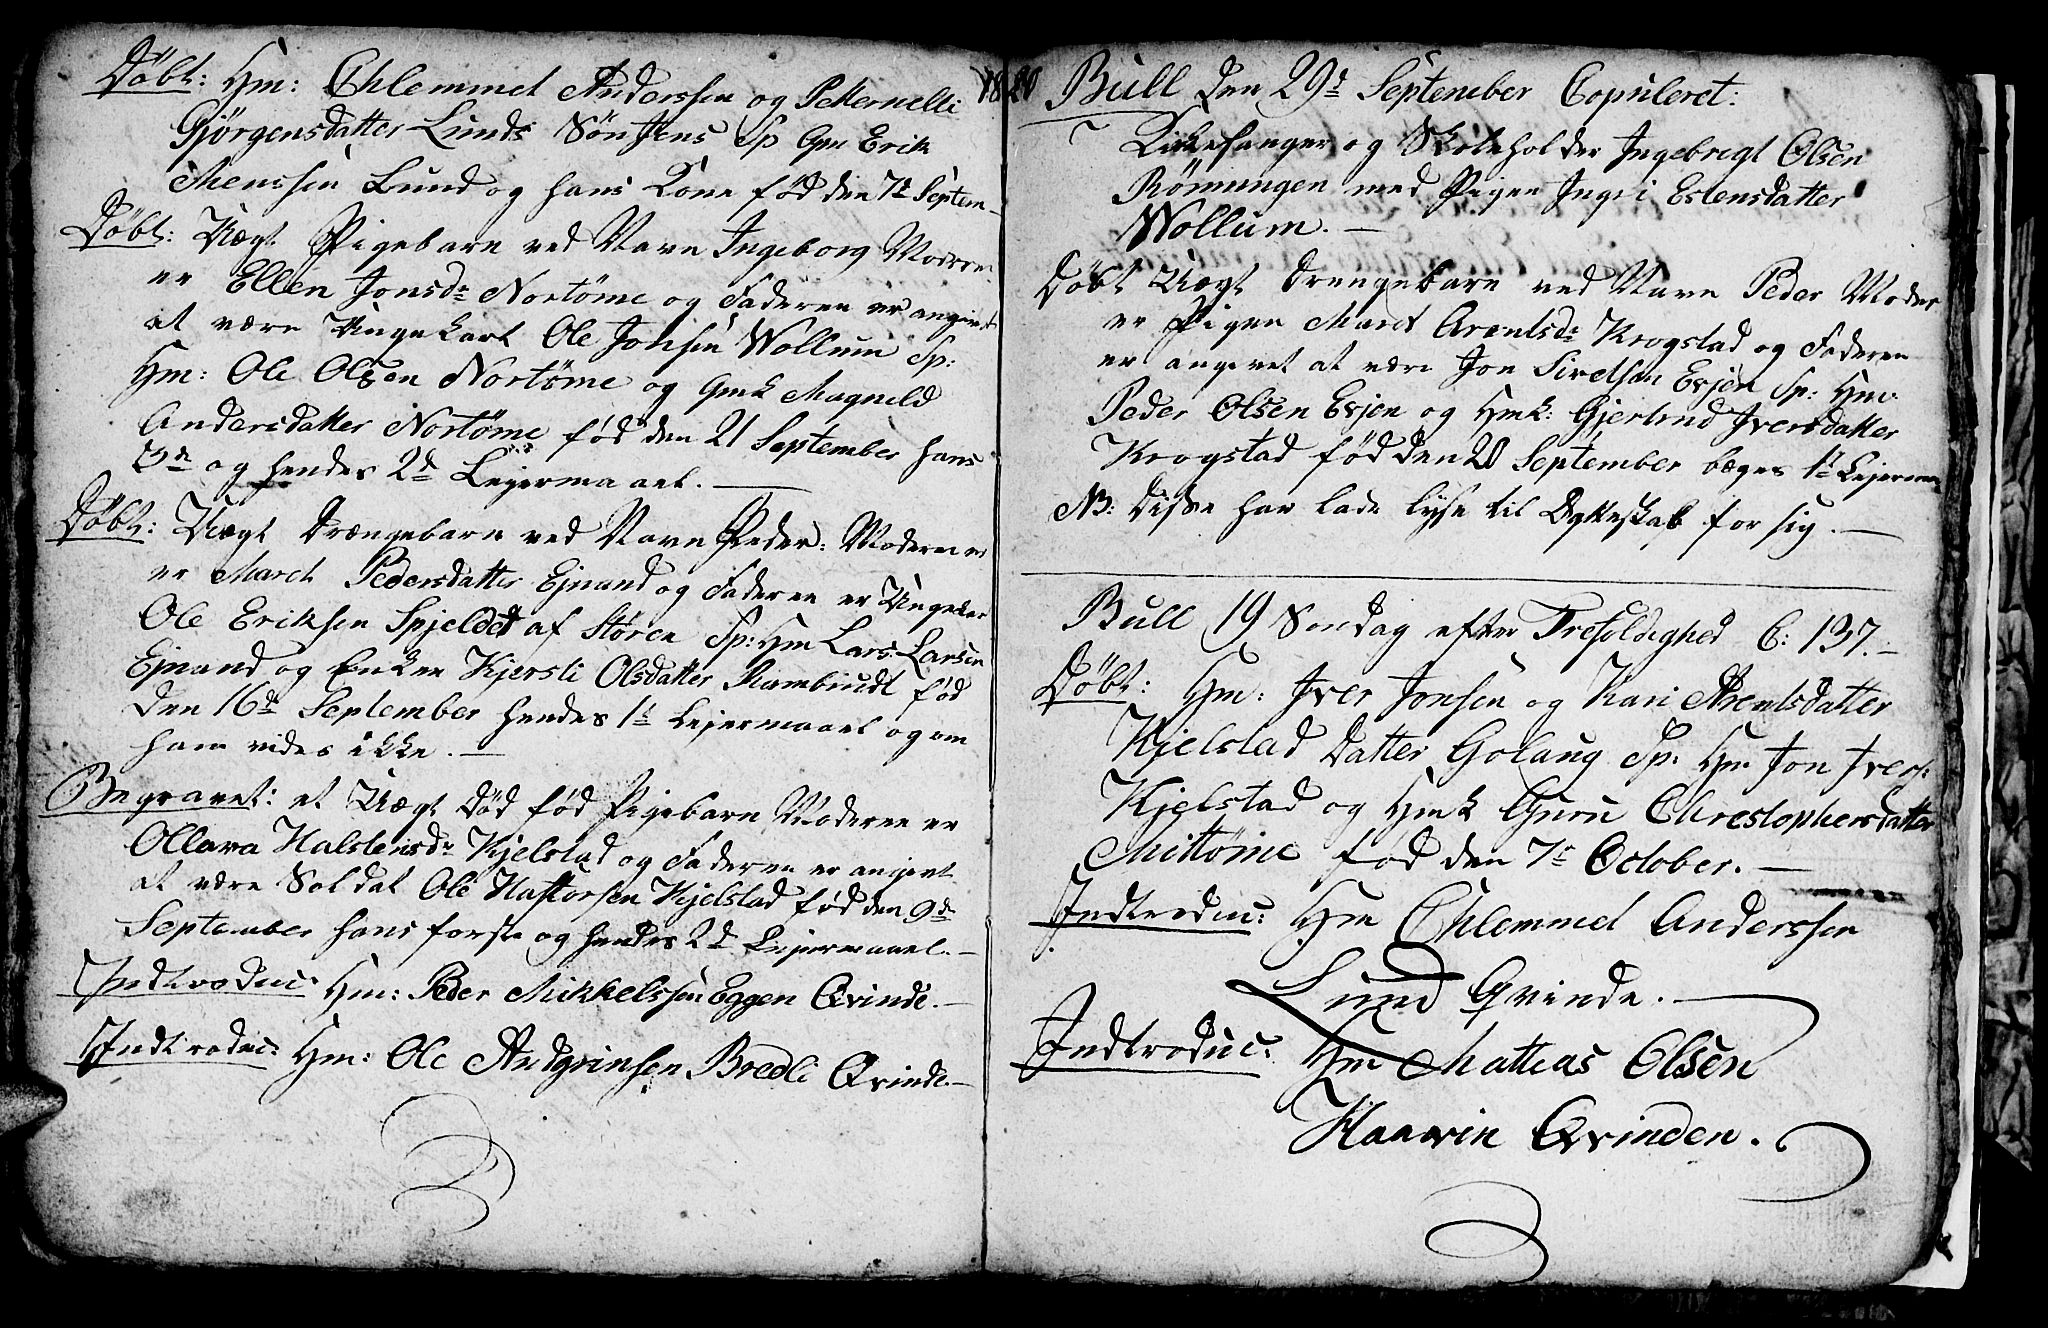 Døbt: Hm: Chlemmet Anderssen og Petternelli
Gjørgensdatter Lunds Søn Jens Sp Gm Erik
Menssen Lund og hans Kone fød den 7de Septem-
Døbt: Uægt Pigebarn ved Navn Ingeborg Moderen
er Ellen Jonsdr Nortømme og Faderen er angivet
at være Ungekarl Ole Jonsen Wollum Sp:
Hm: Ole Olsen Nortømme og Gmk Magnild
Andersdatter Nortømme fød den 21 September hans
og hendes 2d Lejermaael. —
Døbt: Uægt Drængebarn ved Navn Peder: Moderen er
er Maret Pedersdatter Ejnand og Faderen er Ungekar
Ole Eriksen Spjeldet af Støren Sp: Hm Lars Larsen
Ejnand og Enken Kjersti Olsdatter Rambiudt fød
den 16de September hendes 1st Lejermaael og om
ham vides ikke. —
Begravet: et Uægt Død fød Pigebarn Moderen er
Ollava Halstensdr Kjelstad og Faderen er angivet
at være Soldat Ole Hastorsen Kjelstad fød den 9de
September hans første og hendes 2d Lejermaael. —
Indtroduc: Hm: Peder Mikkelssen Eggen Qvinde. —
Indtroduc: Hm: Ole Andgrinsen Bredli Qvinde. —
1820
Bull den 29d September Copuleret:
Kirkesanger og Skoleholder Ingebrigt Olsen
Rømungen med Pigen Ingri Estensdatter
Wollum. —
Døbt Uægt Drengebarn ved Navn Peder Moder
er Pigen Maret Arentsdr Krogstad og Faderen
er angivet at være Jon Sivertsen Evjen Sp: Hm:
Peder Olsen Evjen og Hmk: Gjertrud Iversdatter
Krogstad fød den 20 September begges 1st Lejerma
NB: Disse har lade lyse til Egteskab for sig. —
Bull 19 Søndag efter Trefoldighed C: 137. —
Døbt: Hm: Iver Jonsen og Kari Arentsdatter
Kjelstad Datter Golaug Sp: Hm Jon Ivers:
Kjelstad og Hmk Guru Chrestophersdatter
Mittømme fød den 7de October. —
Indtroduc: Hm Chlemmet Anderssen
Lund Qvinde. —
Indtroduc: Hm Mattias Olsen
Haavin Qvinden.